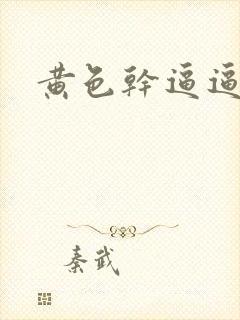 黄色幹逼逼
秦武